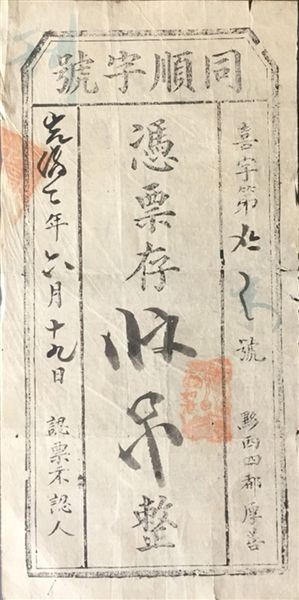 同順字號
喜字第號 黟西四都厚善
憑票存吊整
光緒七年六月十九日 認票不認人